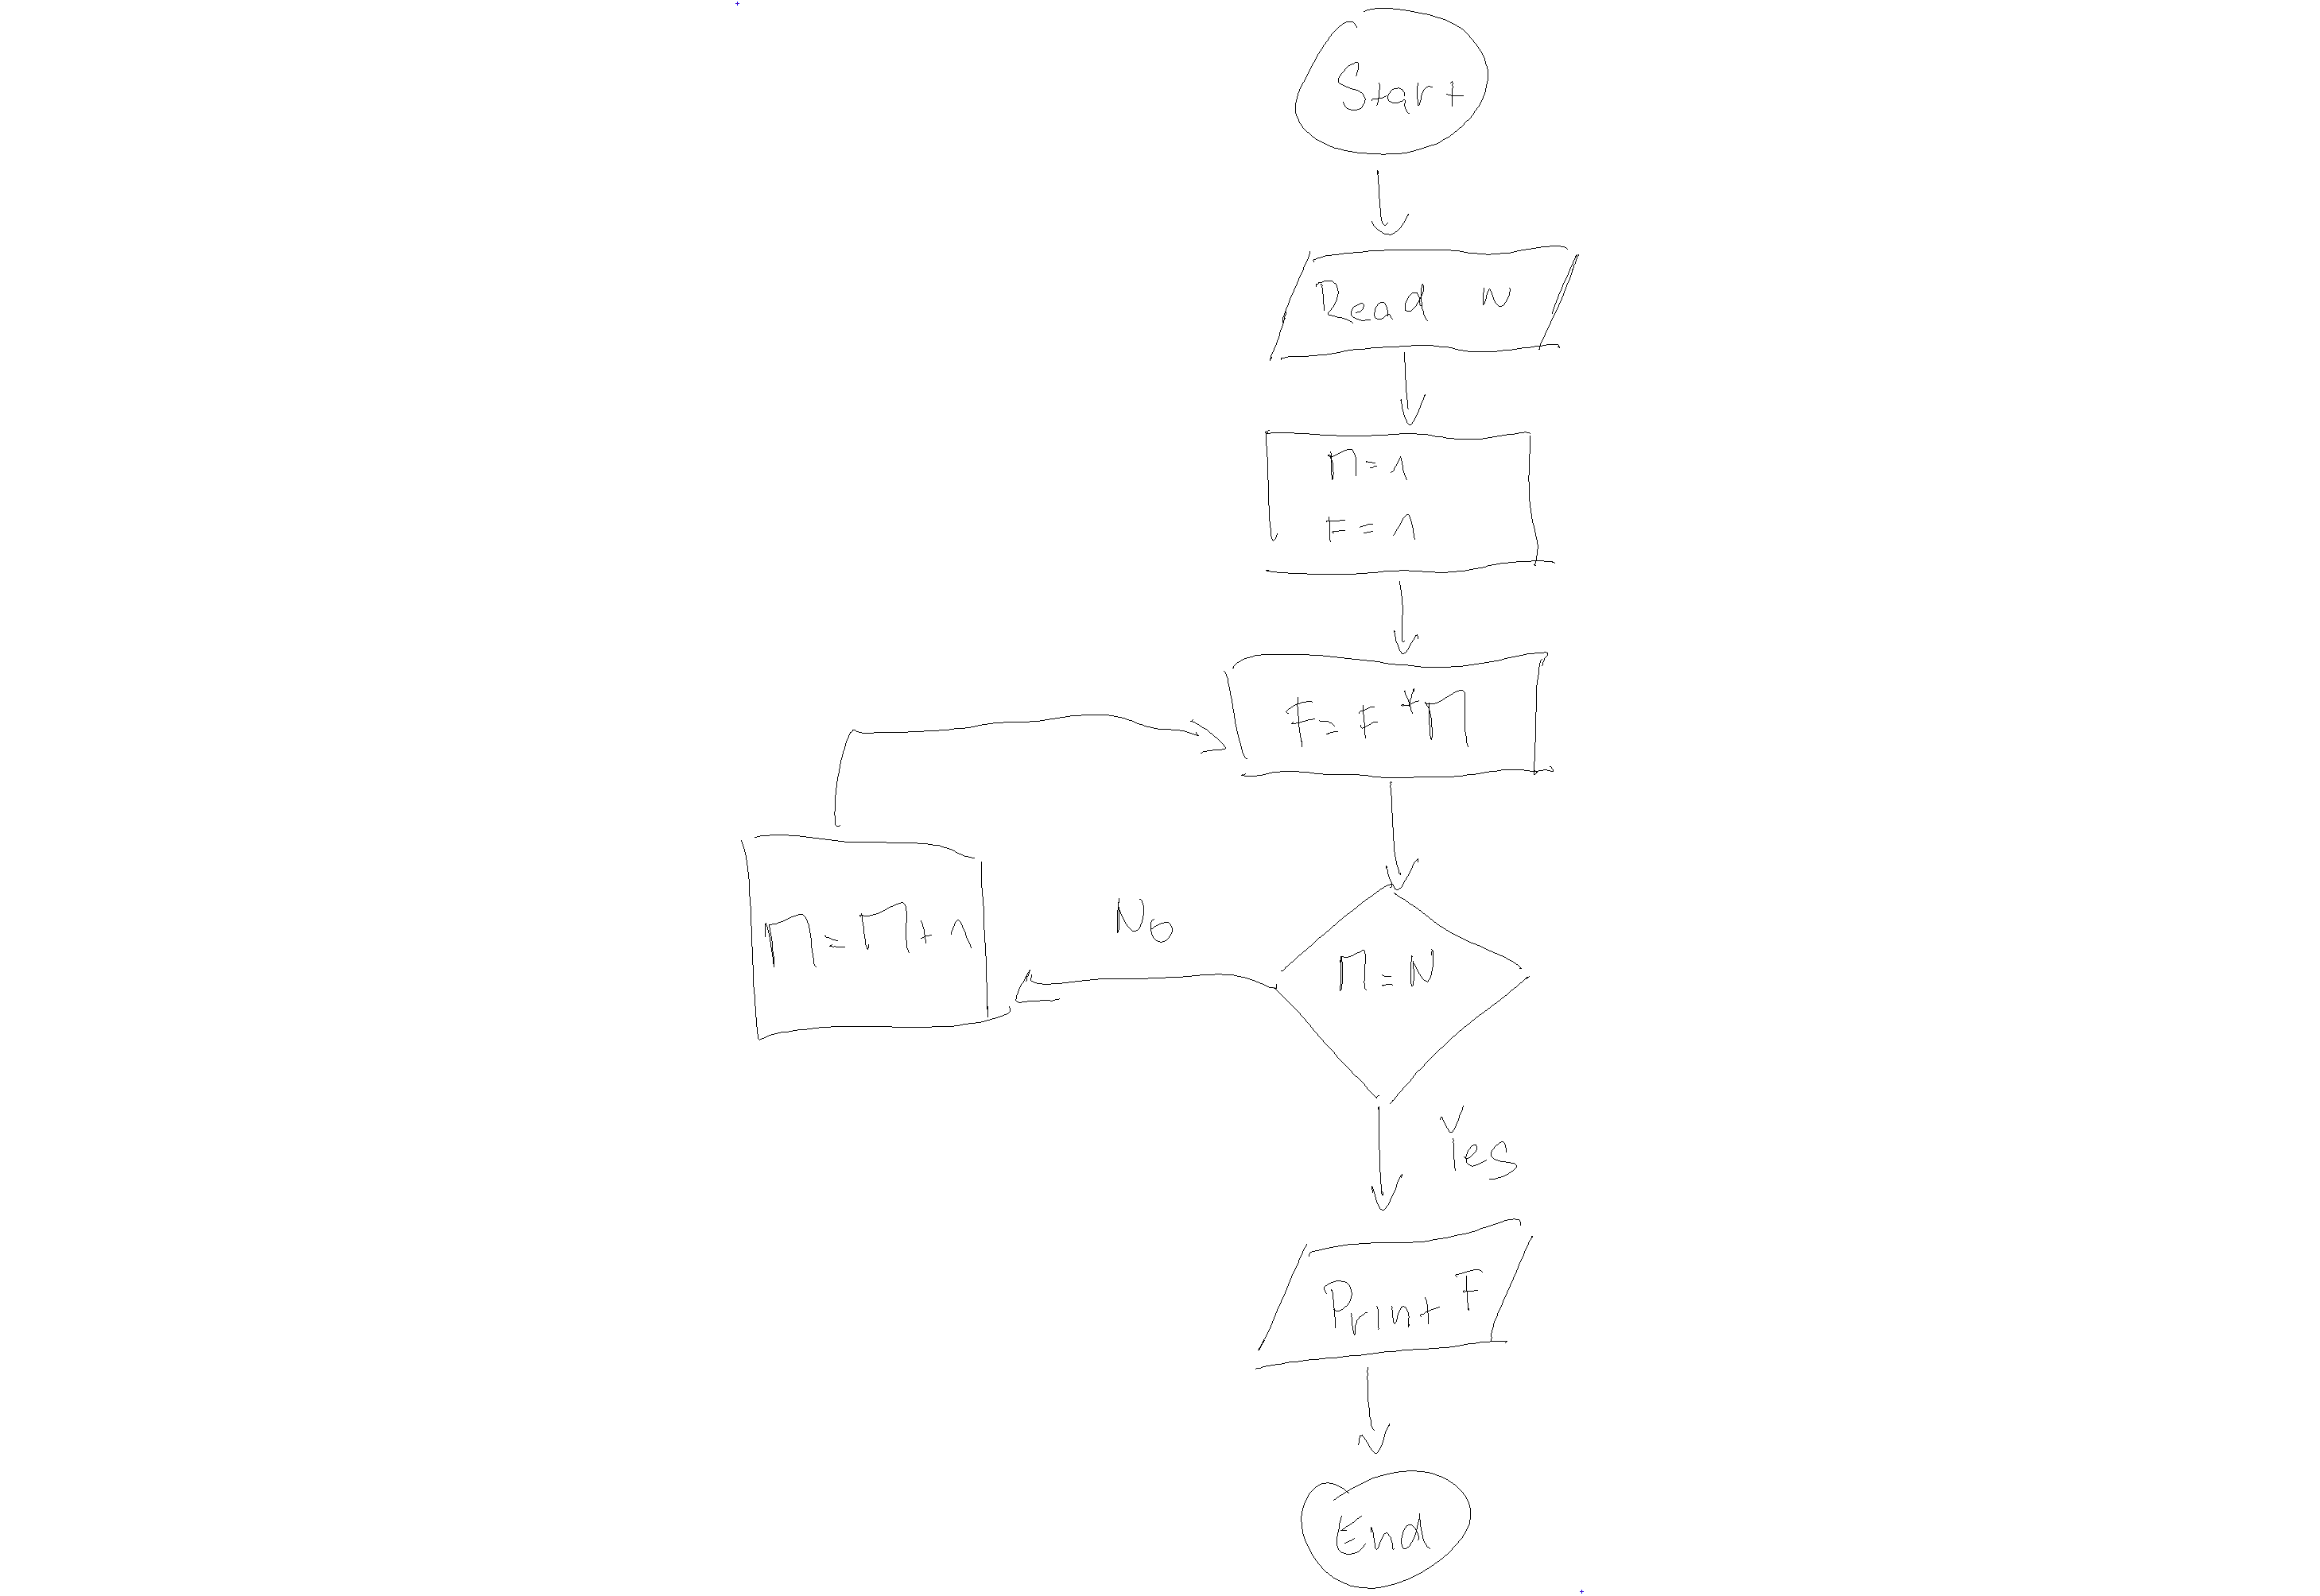 Start
Read N
M=1
F=1
F=F*M
No
M=M+1
M=N
Yes
Print F
End